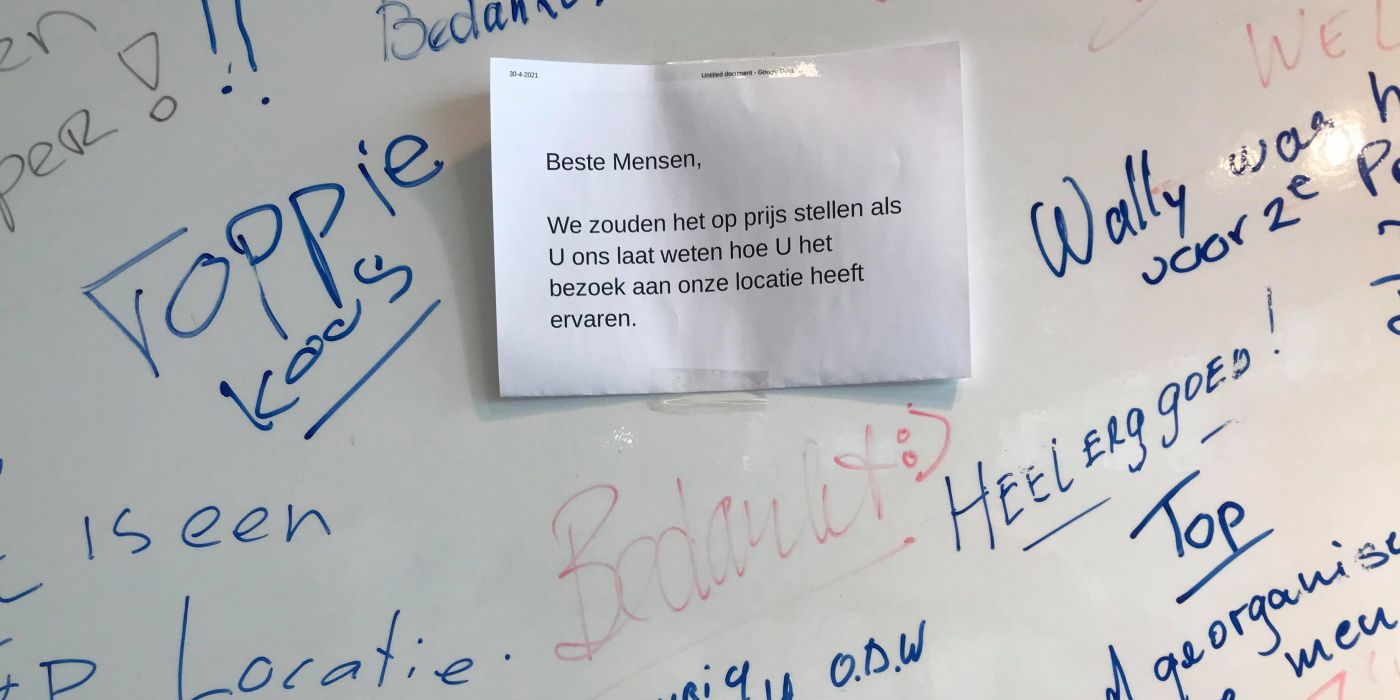 Bedankt
!!
WEL
30-4-2021
Untitled document - Google Docs
Beste Mensen,
We zouden het op prijs stellen als
U ons laat weten hoe U het
bezoek aan onze locatie heeft
ervaren.
Toppie
Koos
Wally was
voor 2e
Bedankt :)
HEEL ERG GOED!
Top
is een
Locatie.
O.D.W
georganise
men